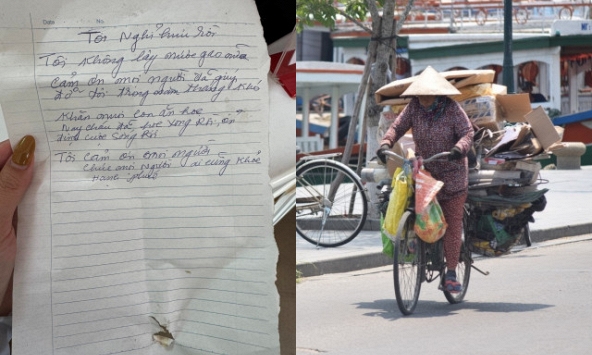 Date No
Tôi Nghỉ hưu rồi
Tôi không lấy nước gạo nữa
Cảm ơn mọi người đã giúp
đỡ tôi trong năm tháng khó
nuôi con ăn học
Nay cháu đã học xong Rồi, ổn
định cuộc sống Rồi
Tôi cảm ơn mọi người
chúc mọi người ai cũng khỏe
Hạnh phúc